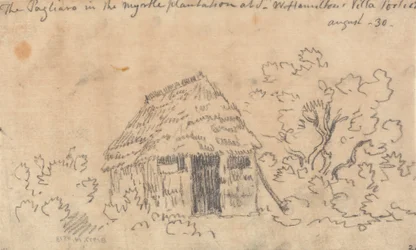 The Pagliara in the myrtle plantation at Sr. W. Hamilton's Villa Portici
august - 30 -